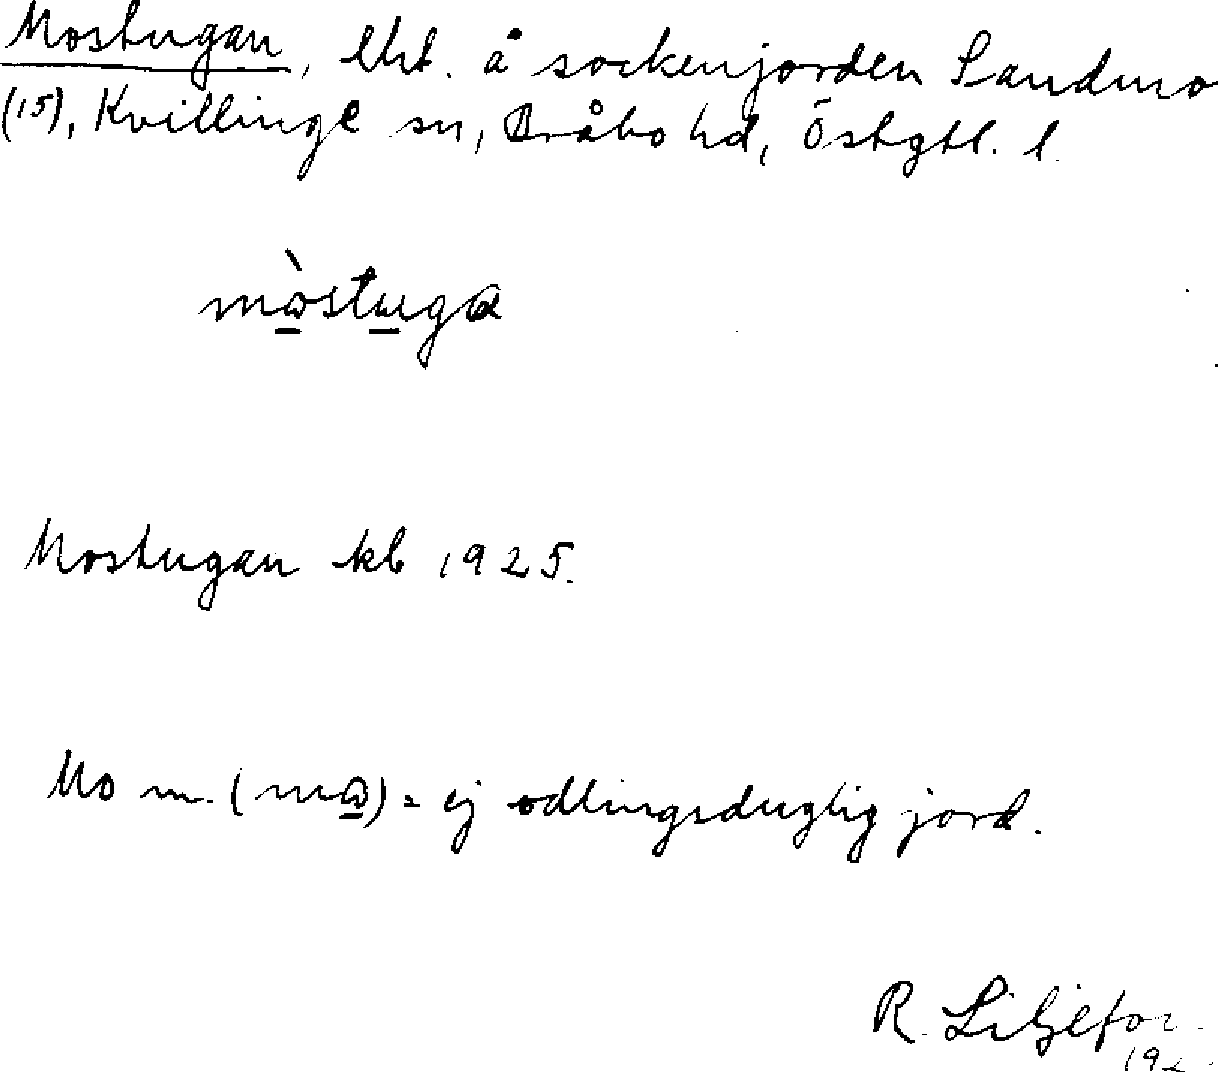 Mostugan, lht. å sockenjorden Sandmo
(15), Kvillinge sn, Bråbo hd, Östgtl. l.
mò̲stu̲ga
Mostugan kb 1925.
Mo m. (mo̲) = ej odlingsduglig jord.
R. Liljefor
192